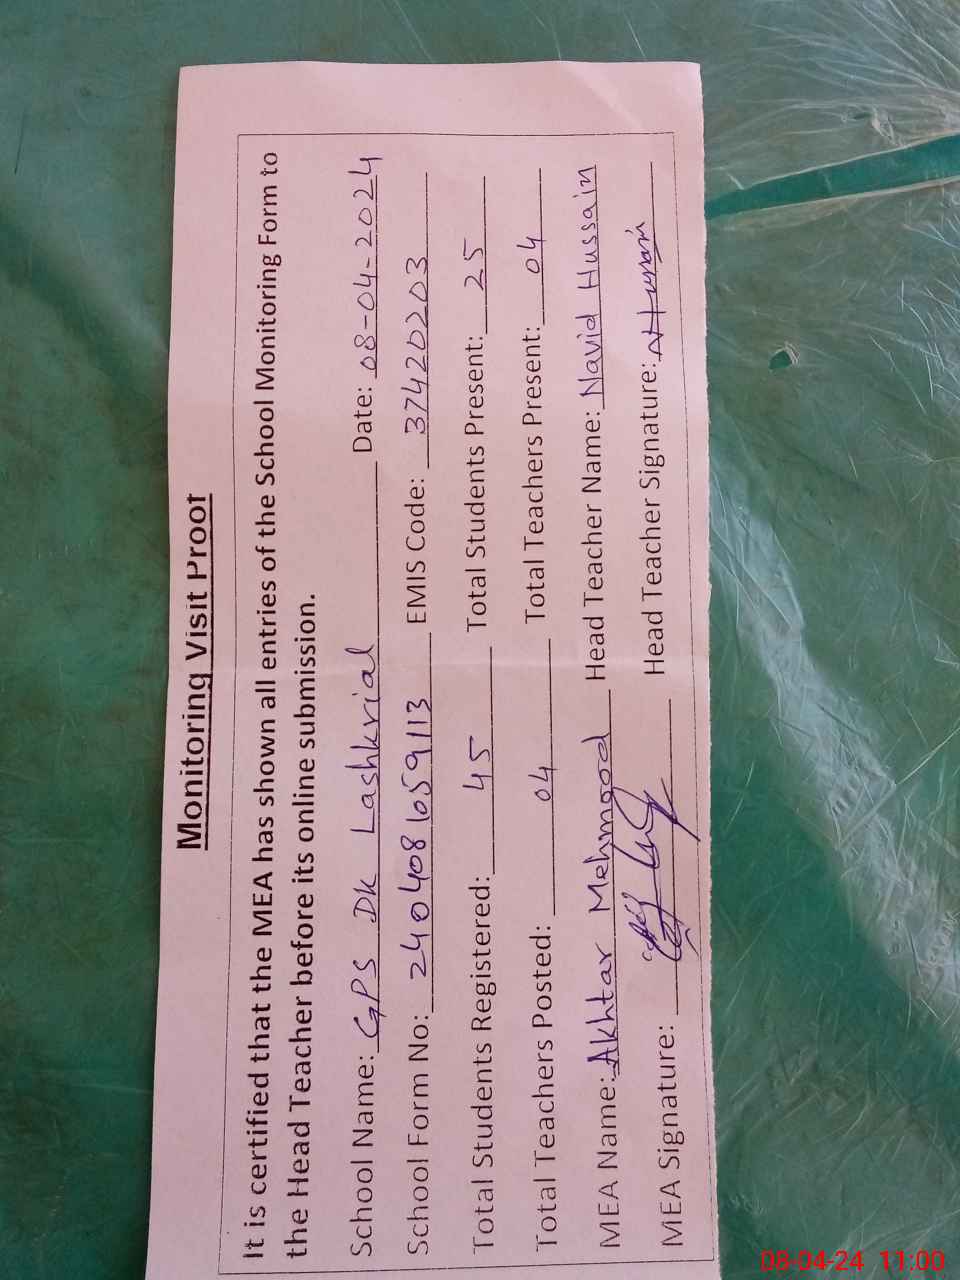 Monitoring Visit Proof
It is certified that the MEA has shown all entries of the School Monitoring Form to
the Head Teacher before its online submission.
School Name: GPS DK Lashkrial Date: 08-04-2024
School Form No: 2404081059113 EMIS Code: 37420203
Total Students Registered: 45 Total Students Present: 25
Total Teachers Posted: 04 Total Teachers Present: 04
MEA Name: Akhtar Mehmood Head Teacher Name: Navid Hussain
MEA Signature: Head Teacher Signature:
08-04-24 11:00